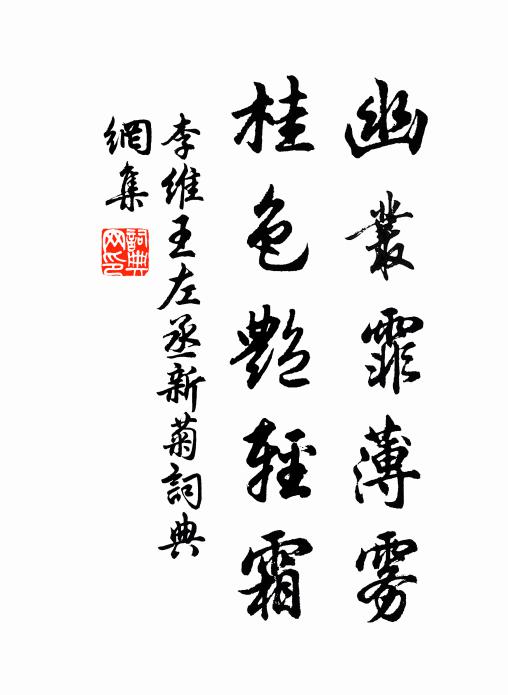 幽叢霏薄雾
桂色艷輕霜
李維王左丞新菊詞典
網集
詞典
网印